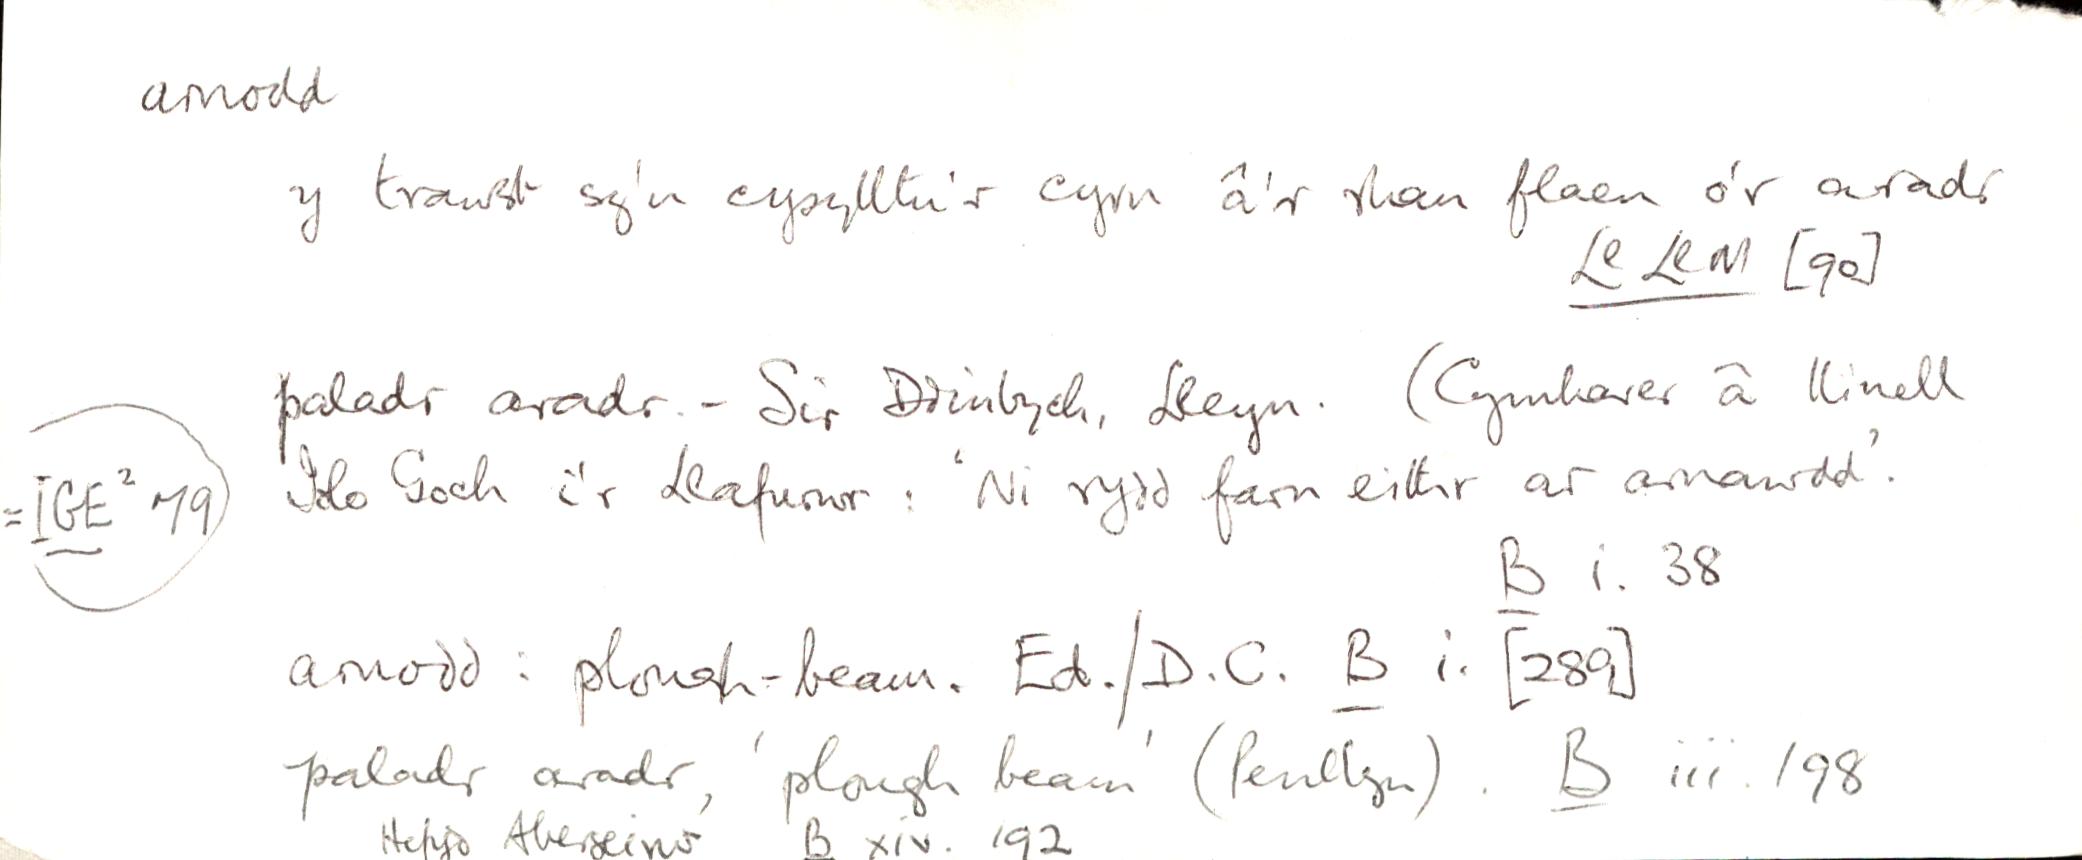 arnodd
y trawst sy'n cysylltu'r cyrn â'r rhan flaen o'r aradr
Ll Ll M [90]
paladr aradr. - Sir Ddinbych, Lleyn. (Cymharer â llinell
= IGE² 79
Iolo Goch i'r Llafurwr : 'Ni rydd farn eithr ar arnawdd'.
B i. 38
arnodd : plough-beam. Ed./D.C. B i. [289]
paladr aradr, 'plough beam' (Penllyn). B iii. 198
Hefyd B xiv. 192